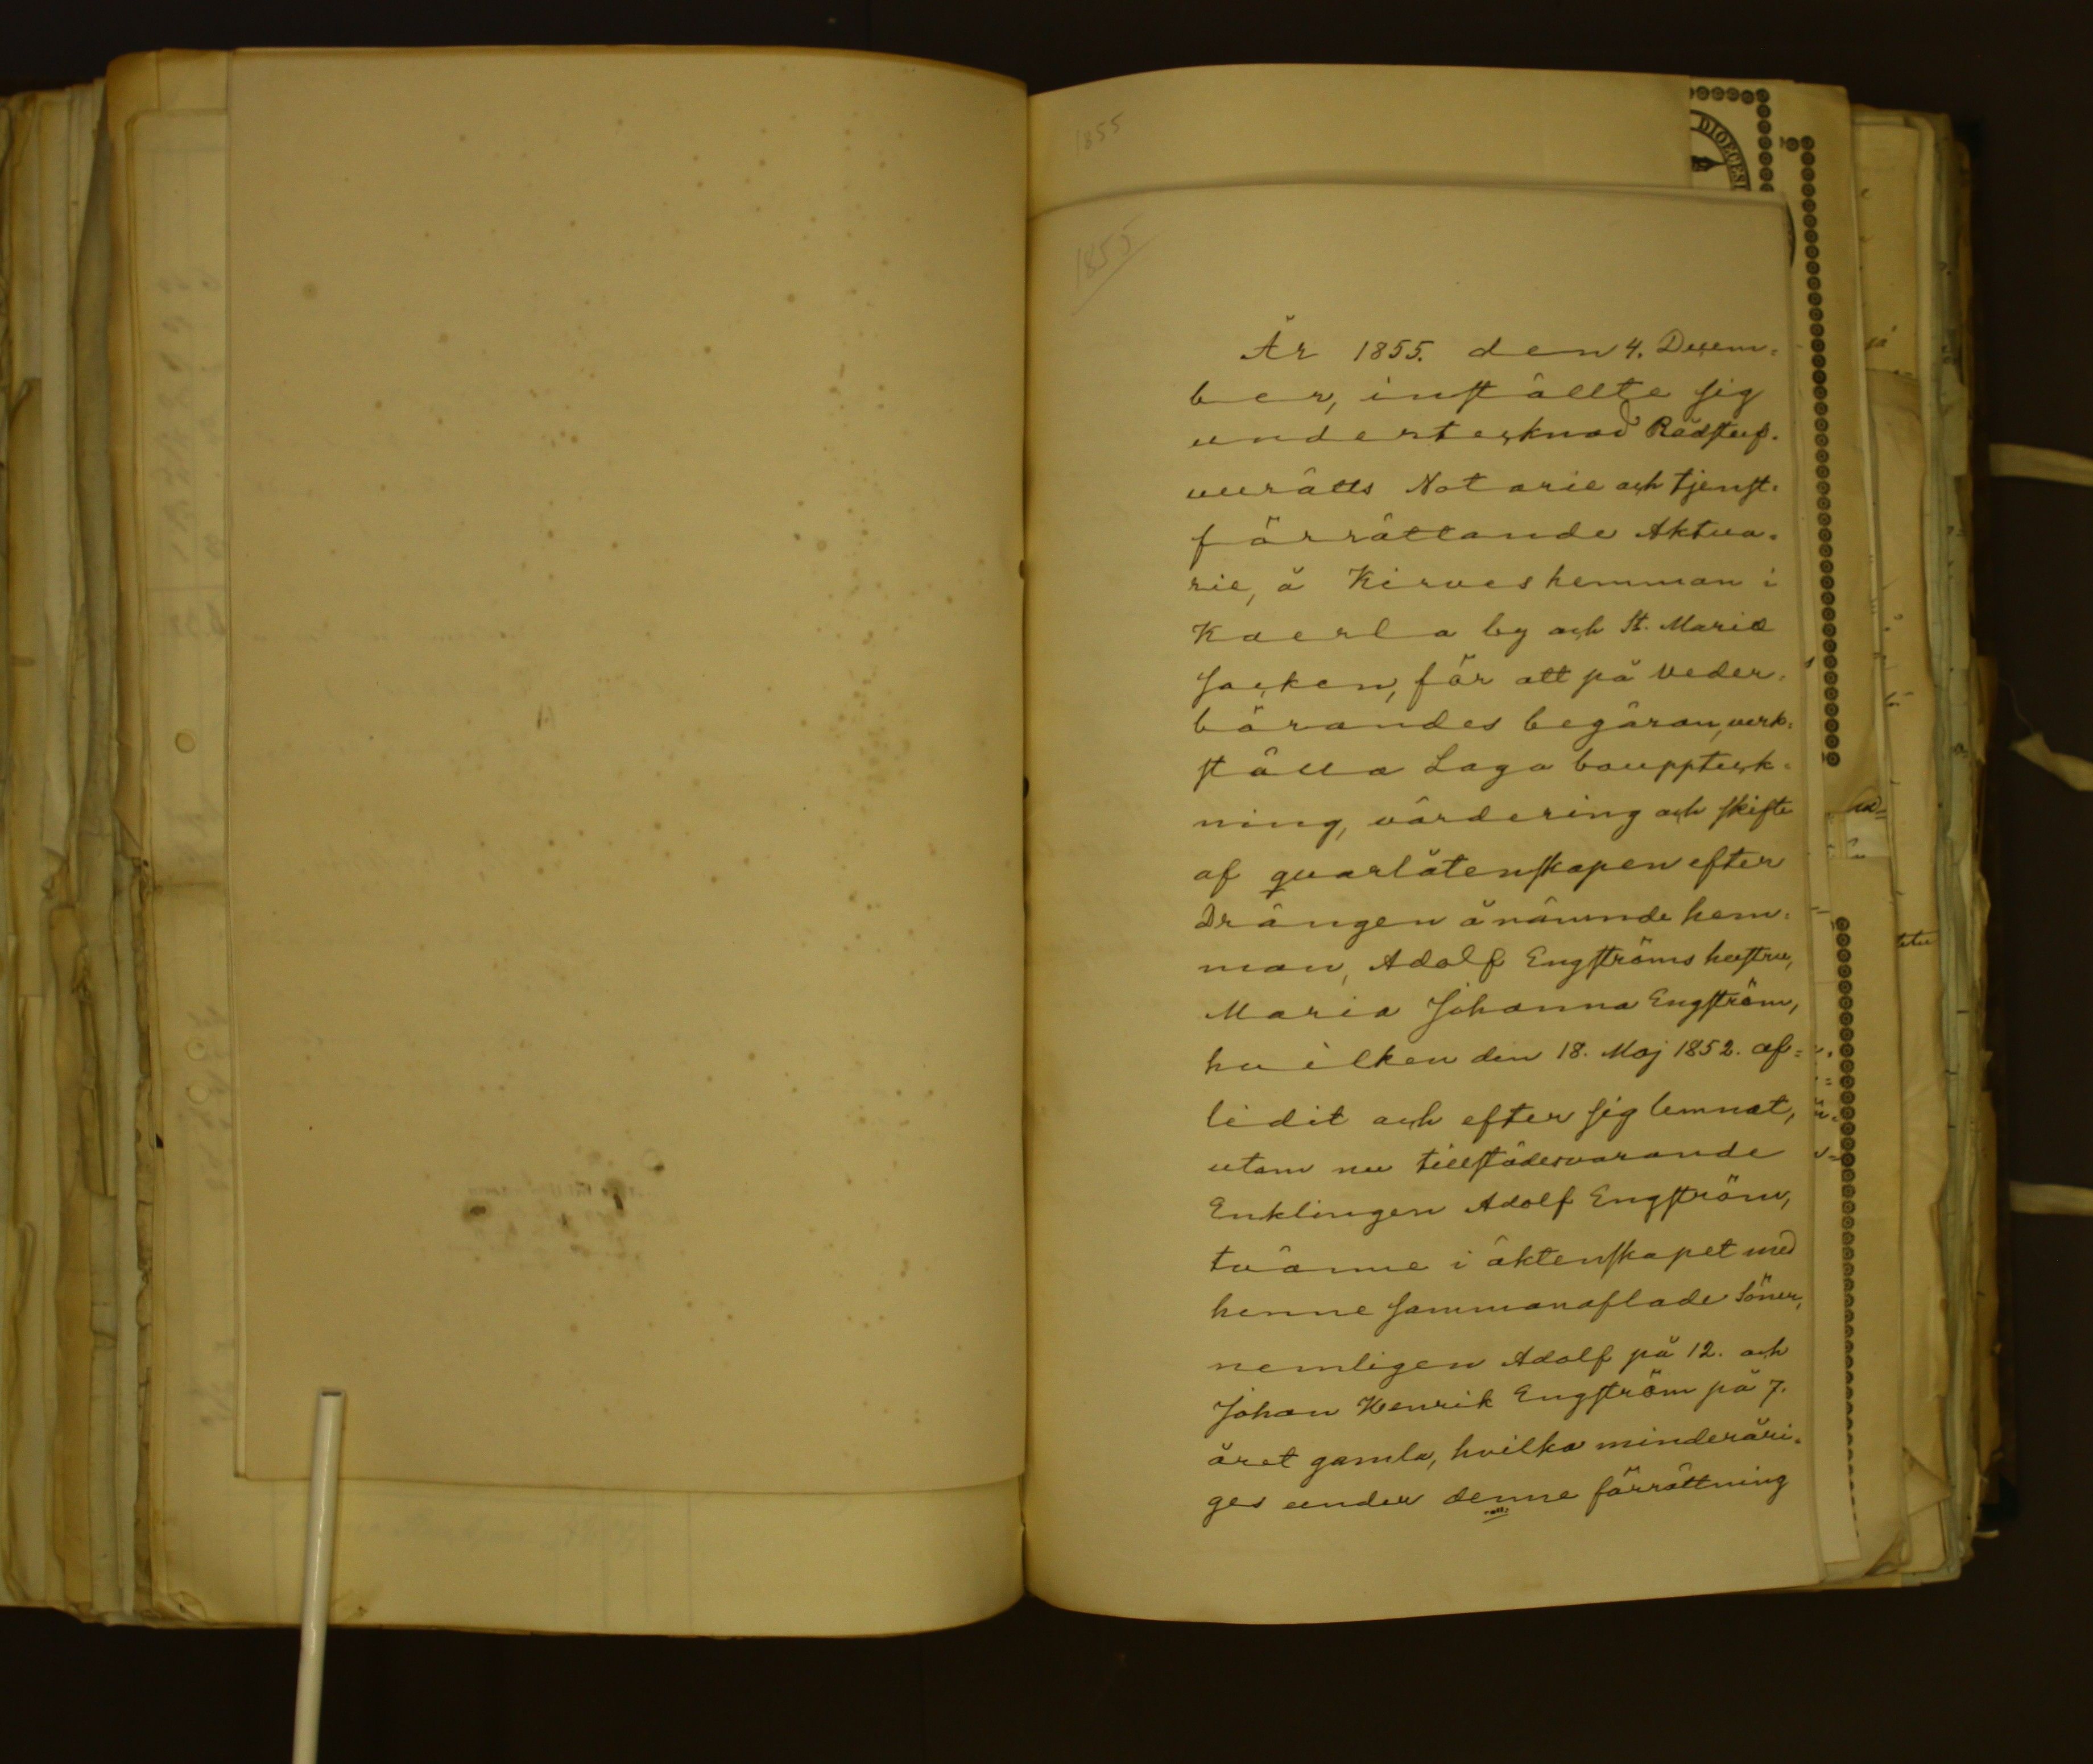 1855
DIOECESI
1855
År 1855. den 4. Decem=
ber, inställte sig
undertecknad Rådstuf=
vurätts Notarie och tjenst=
förrättande Aktua=
rie, å Kirves hemman i
Kaerla by och St. Mariæ
Socken, för att på veder=
börandes begäran, verk=
ställa Laga bouppteck=
ning, värdering och skifte
af quarlåtenskapen efter
Drängen å nämnde hem=
man, Adolf Engströms hustru,
Maria Johanna Engström,
hvilken den 18. Maj 1852. af=
lidit och efter sig lemnat,
utom nu tillstädesvarande
Enklingen Adolf Engström,
tvänne i äktenskapet med
henne sammanaflade Söner,
nemligen Adolf på 12. och
Johan Henrik Engström på 7.
året gamla, hvilka minderåri=
ges under denne förrättning